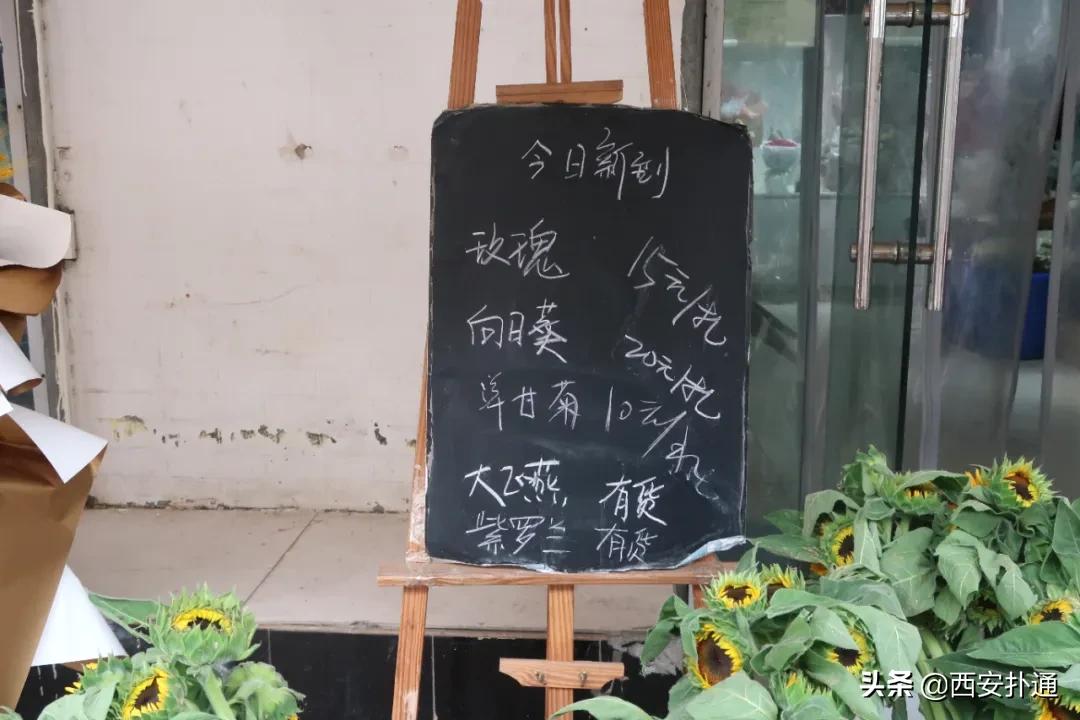 今日新到
玫瑰 15元/扎
向日葵 20元/扎
草甘菊 10元/扎
大飞燕, 有货
紫罗兰 有货
头条 @西安扑通